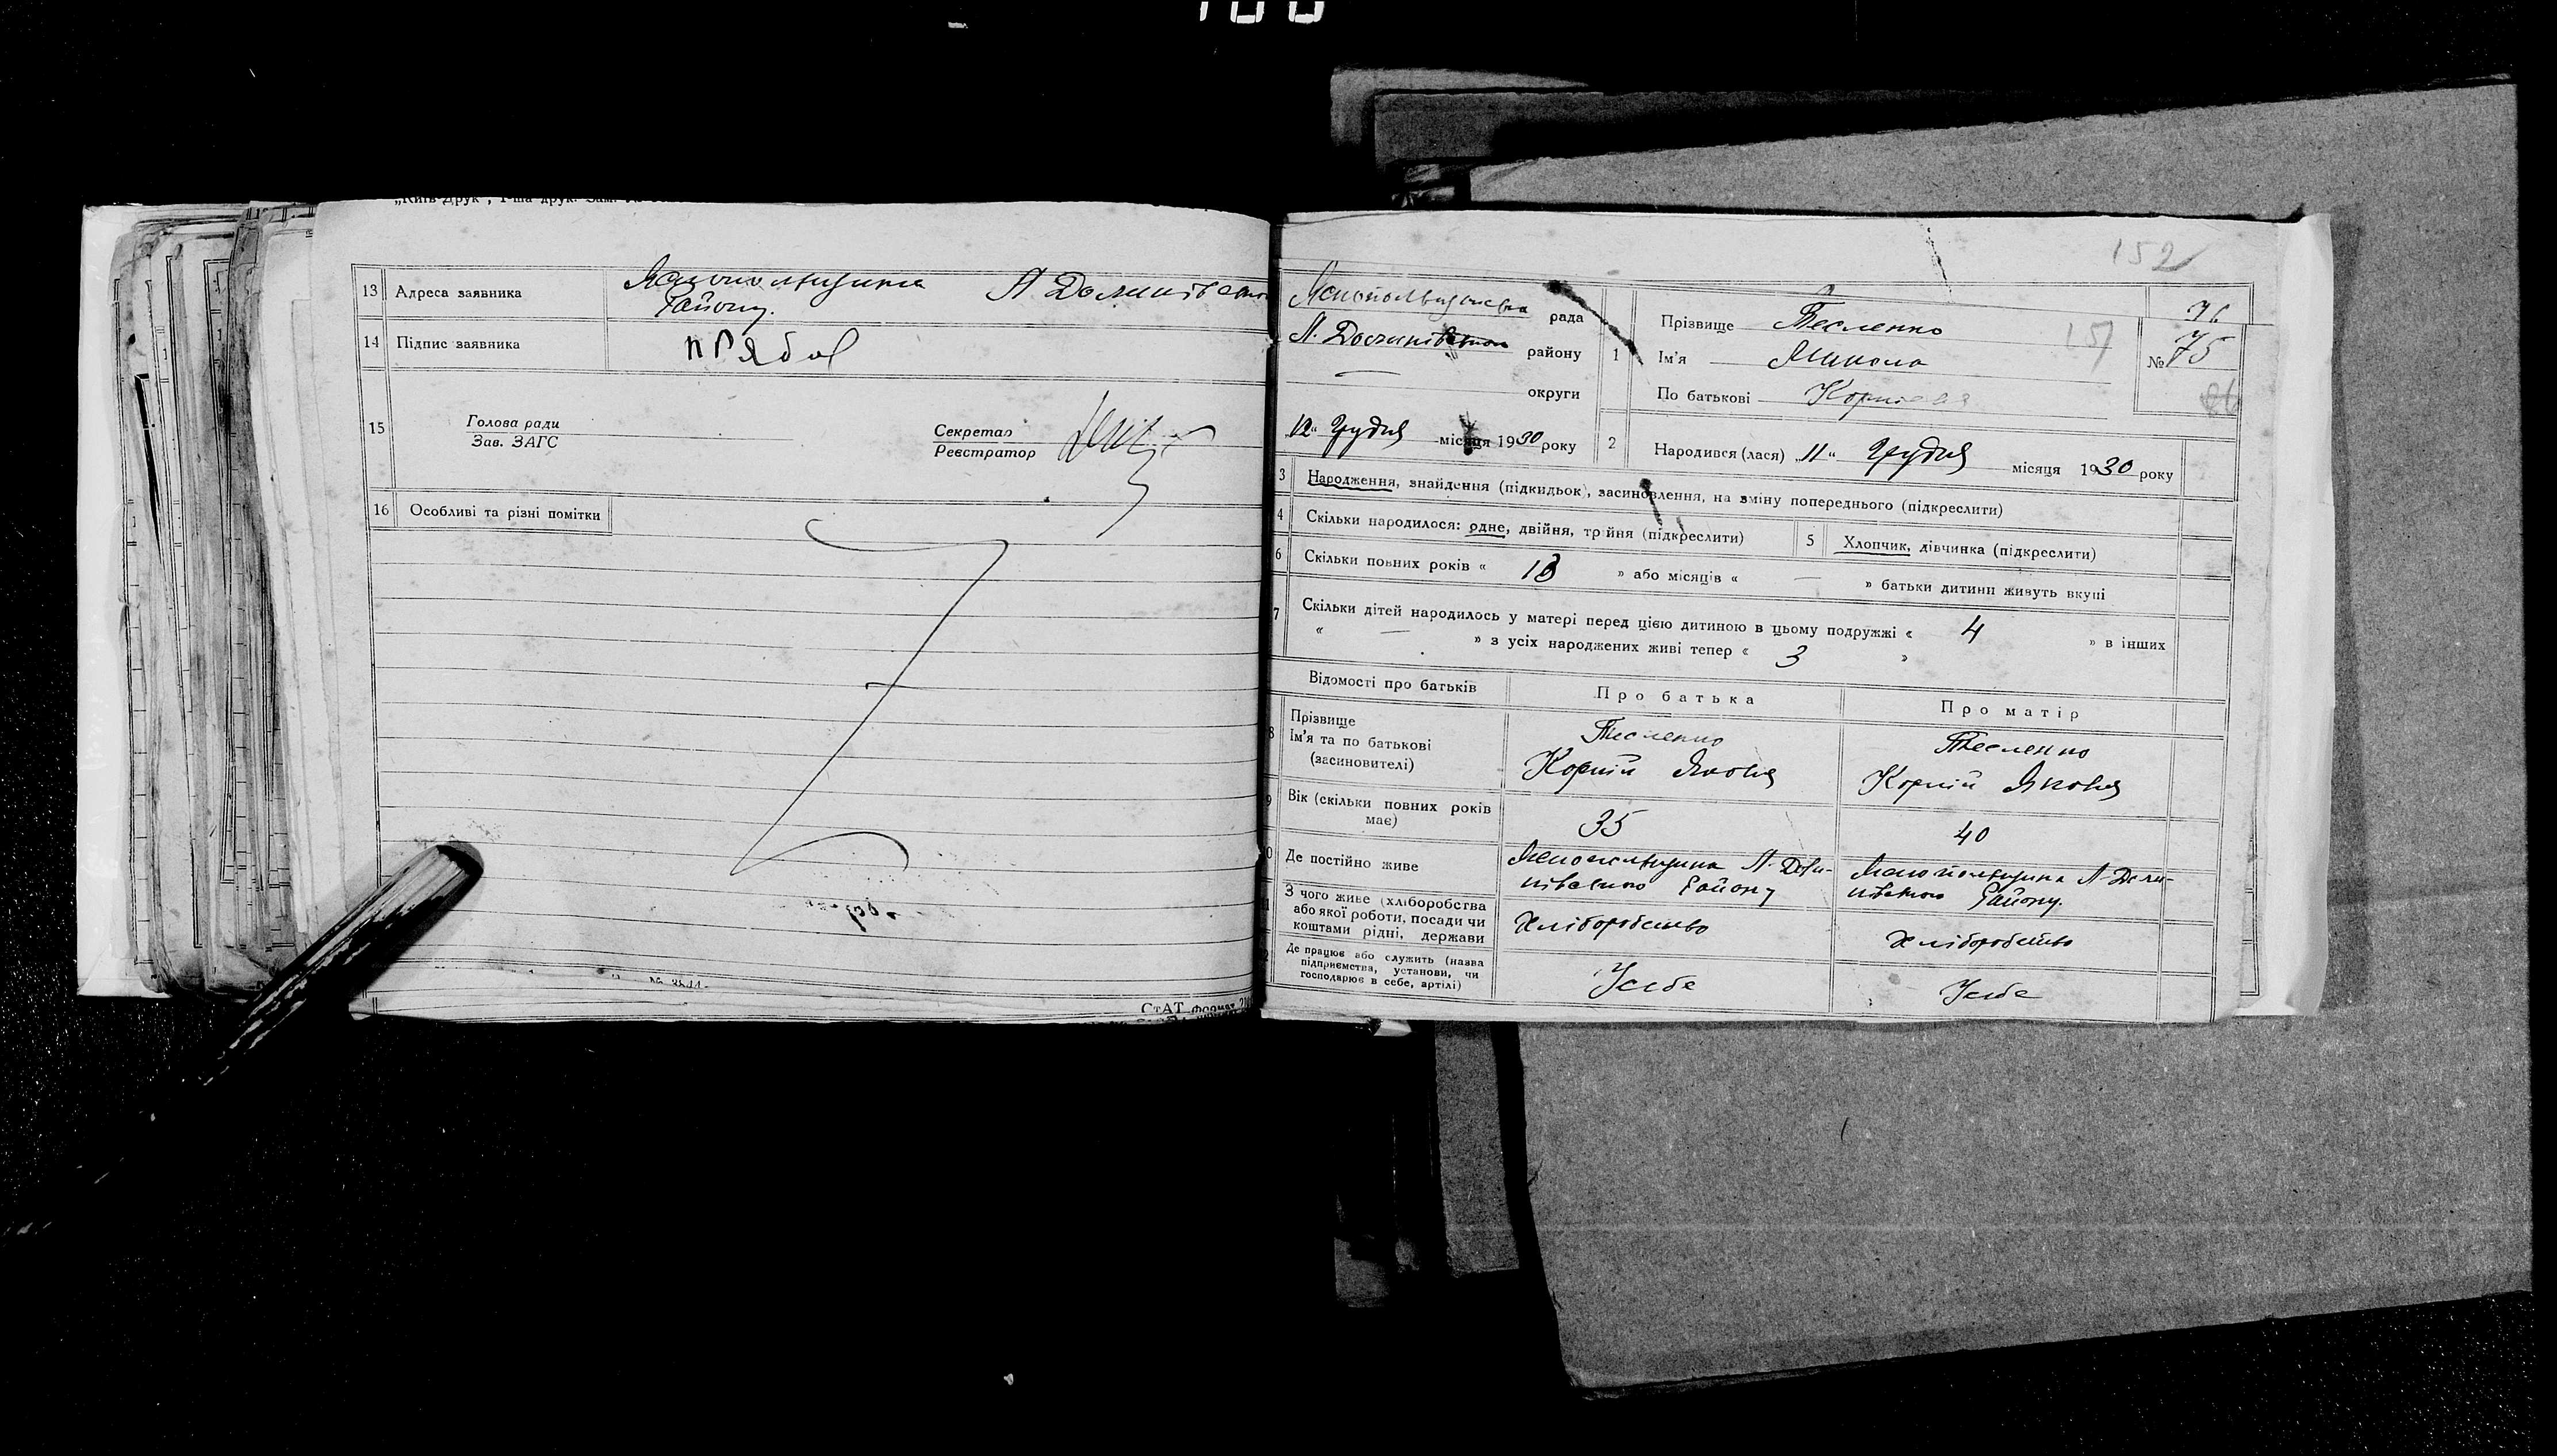 13 Адреса заявника
Району.
14 Підпис заявника
15 Голова ради
Зав. ЗАГС
Секретар
Реєстратор
16 Особливі та різні помітки
152
рада
району
округи
„12“ Грудня місяця 1930 року
1 Прізвище Тесленко
Ім'я Микола
По батькові
76
№ 75
2 Народився (лася) „11“ Грудня місяця 1930 року
3 Народження, знайдення (підкидьок), засиновлення, на зміну попереднього (підкреслити)
4 Скільки народилося: одне, двійня, трійня (підкреслити)
5 Хлопчик, дівчинка (підкреслити)
6 Скільки повних років « » або місяців « — » батьки дитини живуть вкупі
7 Скільки дітей народилось у матері перед цією дитиною в цьому подружжі « 4 » в інших
« — » з усіх народжених живі тепер « 3 »
Відомості про батьків
Про батька
Про матір
8 Прізвище
Ім'я та по батькові
(засиновителі)
Тесленко
Корній Яковл
Тесленко
Корній Яковл
9 Вік (скільки повних років
має)
35
40
Де постійно живе
Району
Району.
З чого живе (хліборобства
або якої роботи, посади чи
коштами рідні, держави
хліборобство
хліборобство
Де працює або служить (назва
підприємства, установи, чи
господарює в себе, артілі)
У себе
У себе
СтАТ формат